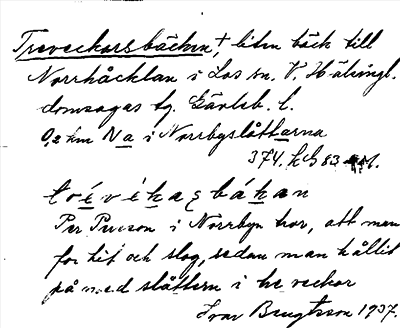 Treveckorsbäcken, liten bäck till
Norrhåcklan i Los sn. V. Hälsingl.
domsagas tg. Gävleb. l.
0,2 km Na i Norrbyslåttarna
374. h
tréveka bákan
Per Persson i Norrbyn har, att man
for hit och slog, sedan man hållit
på med slåttern i tre veckor
Ivar Bengtsson 1937.